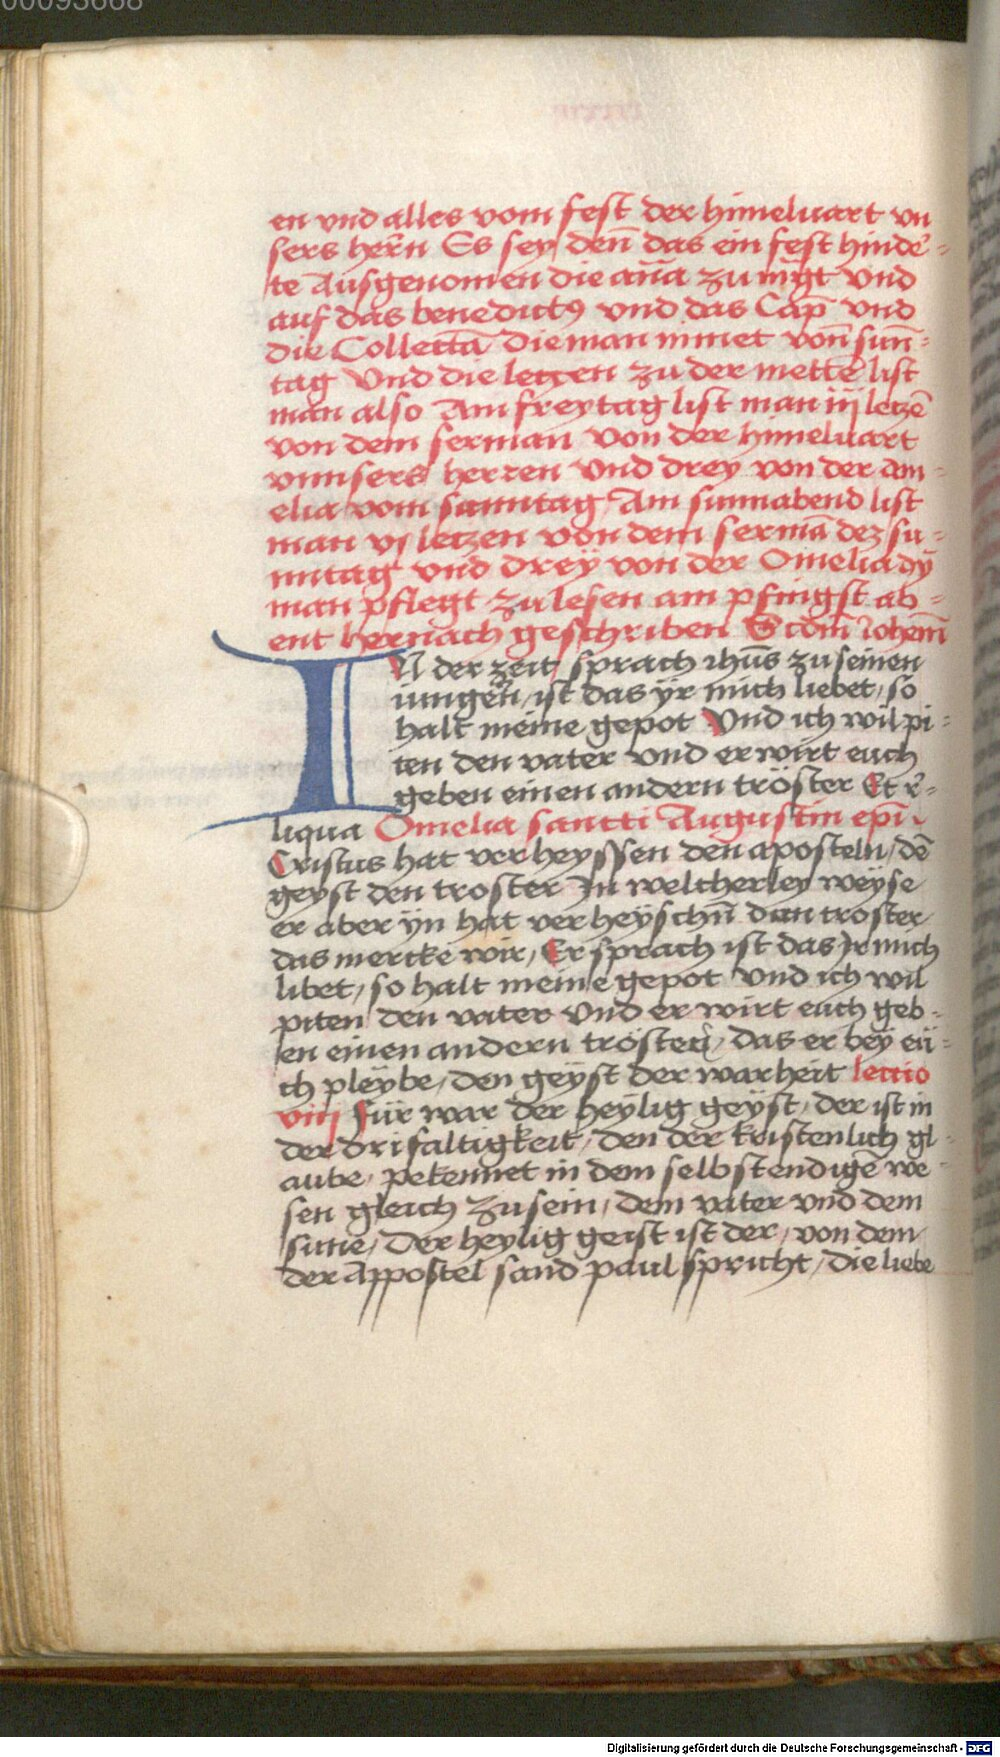 00093668
en vnd alles vom fest der himeluart vn
sers herñ Es sey denn̄ das ein fest hinde᷑-
te Ausgenomen die an̄a zu mgt̄ vnd
auf das benedictꝰ vnd das Cap̄ vnd
die Collectā die man nimet von̄ sun̄-
tag Vnd die letzen zu der mettē list
man also Am freytag list man iij letzē
von dem serman von der himeluart
vnnsers herren Vnd drey von der am-
elia vom sanntag Am sunnabend list
man vj letzen von dem sermā dez su-
nntag vnd drey von der Omelia dy
man pflegt zu lesen am pfingst ab-
ent hernach geschriben Scdm̄ Iohem̄
IN der zeit sprach ihūs zu seinen
iungern̄, ist das ÿr mich liebet, so
halt meine gepot Vnd ich wil pi-
ten den vater vnd er wirt euch
geben einen andern tröster Et r̄e-
liqua Omelia sancti Augustin ep̄i.
Cristus hat verheyssen den aposteln, dē
geyst den troster Jn weltherley weyse
er aber ÿn hat verheÿschn̄ den troster
das mercke wir, Er sprach ist das Jr mich
libet, so halt meine gepot Vnd ich wil
piten den vater Vnd er wirt euch geb-
en einen andern tröster, das er beÿ eü-
ch pleÿbe, den geÿst der warheit lectio
viij Für war der heÿlig geÿst, der ist in
der drifaltigkeit, den der kristenlich gl-
aube, pekennet in dem selbstendigē we-
sen gleich zu sein, dem vater vnd dem
sune, Der heylig geist ist der, von dem
der Appostel sand paul spricht, die liebe
Digitalisierung gefördert durch die Deutsche Forschungsgemeinschaft - DFG